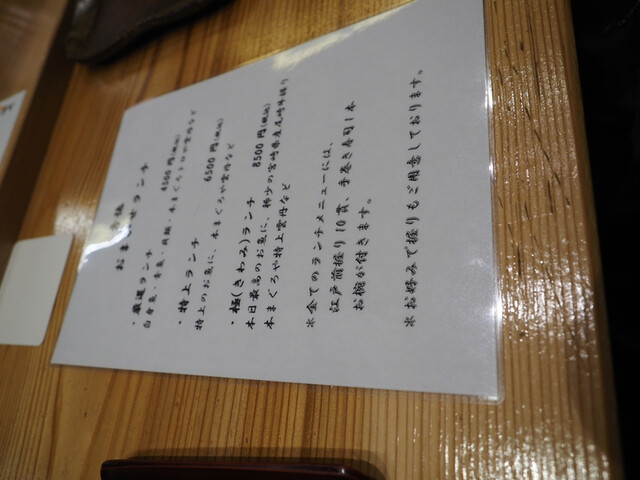 おまかせランチ
・厳選ランチ 4500円(税込)
白身魚・青魚・貝類・本まぐろトロや雲丹など
・特上ランチ 6500円(税込)
特上のお魚に、本まぐろや雲丹など
・極(きわみ)ランチ 8500円(税込)
本日最高のお魚に、稀少の宮崎県産尾崎牛握り
本まぐろや特上雲丹など
※全てのランチメニューには、
江戸前握り10貫、手巻き寿司1本
お椀が付きます。
※お好みで握りもご用意しております。